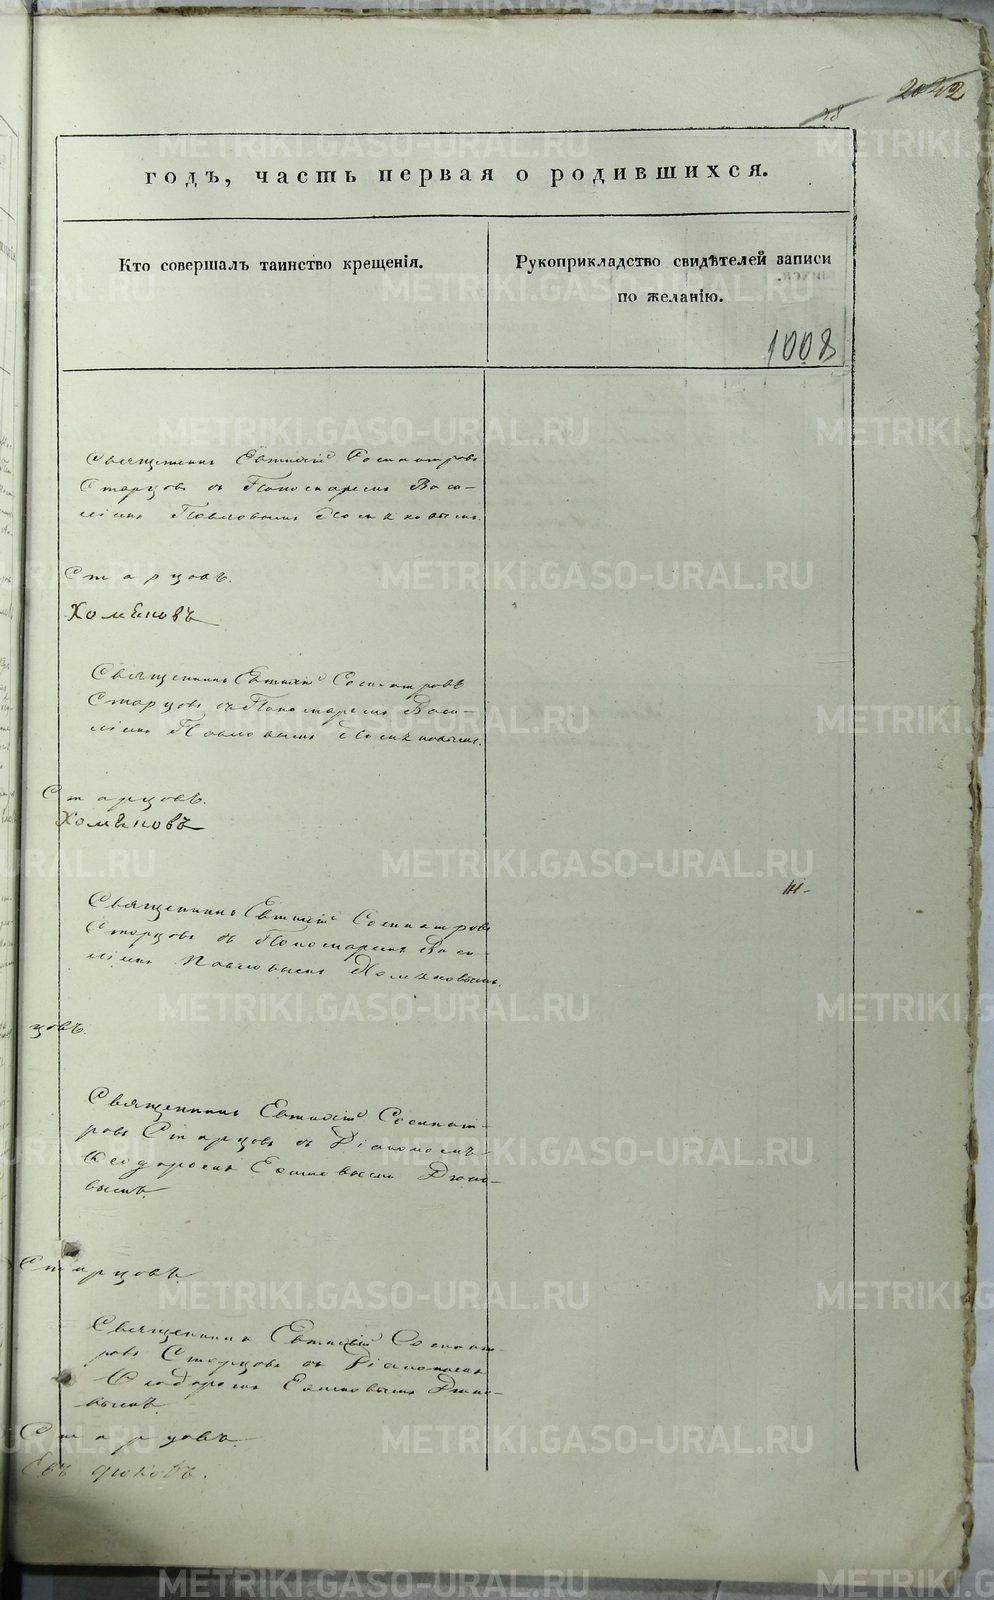 2022
38
годъ, часть первая о родившихся.
Кто совершалъ таинство крещенія.
Рукоприкладство свидѣтелей записи
по желанію.
1008
Священникъ Евтихій Сосипатровъ
Старцовъ съ Пономаремъ Васи-
ліемъ Павловымъ Хомяковымъ.
Старцовъ.
Хомяковъ
Священникъ Евтихій Сосипатровъ
Старцовъ съ Пономаремъ Васи-
ліемъ Павловымъ Хомяковымъ.
Старцовъ.
Хомяковъ
Священникъ Евтихій Сосипатровъ
Старцовъ съ Пономаремъ Васи-
ліемъ Павловымъ Хомяковымъ.
цовъ.
Священникъ Евтихій Сосипат-
ровъ Старцовъ съ Діакономъ
Ѳеодоромъ
вымъ.
Старцовъ.
Священникъ Евтихій Сосипат-
ровъ Старцовъ съ Діакономъ
Ѳеодоромъ
вымъ.
Старцовъ.
дюковъ.
METRIKI.GASO-URAL.RU